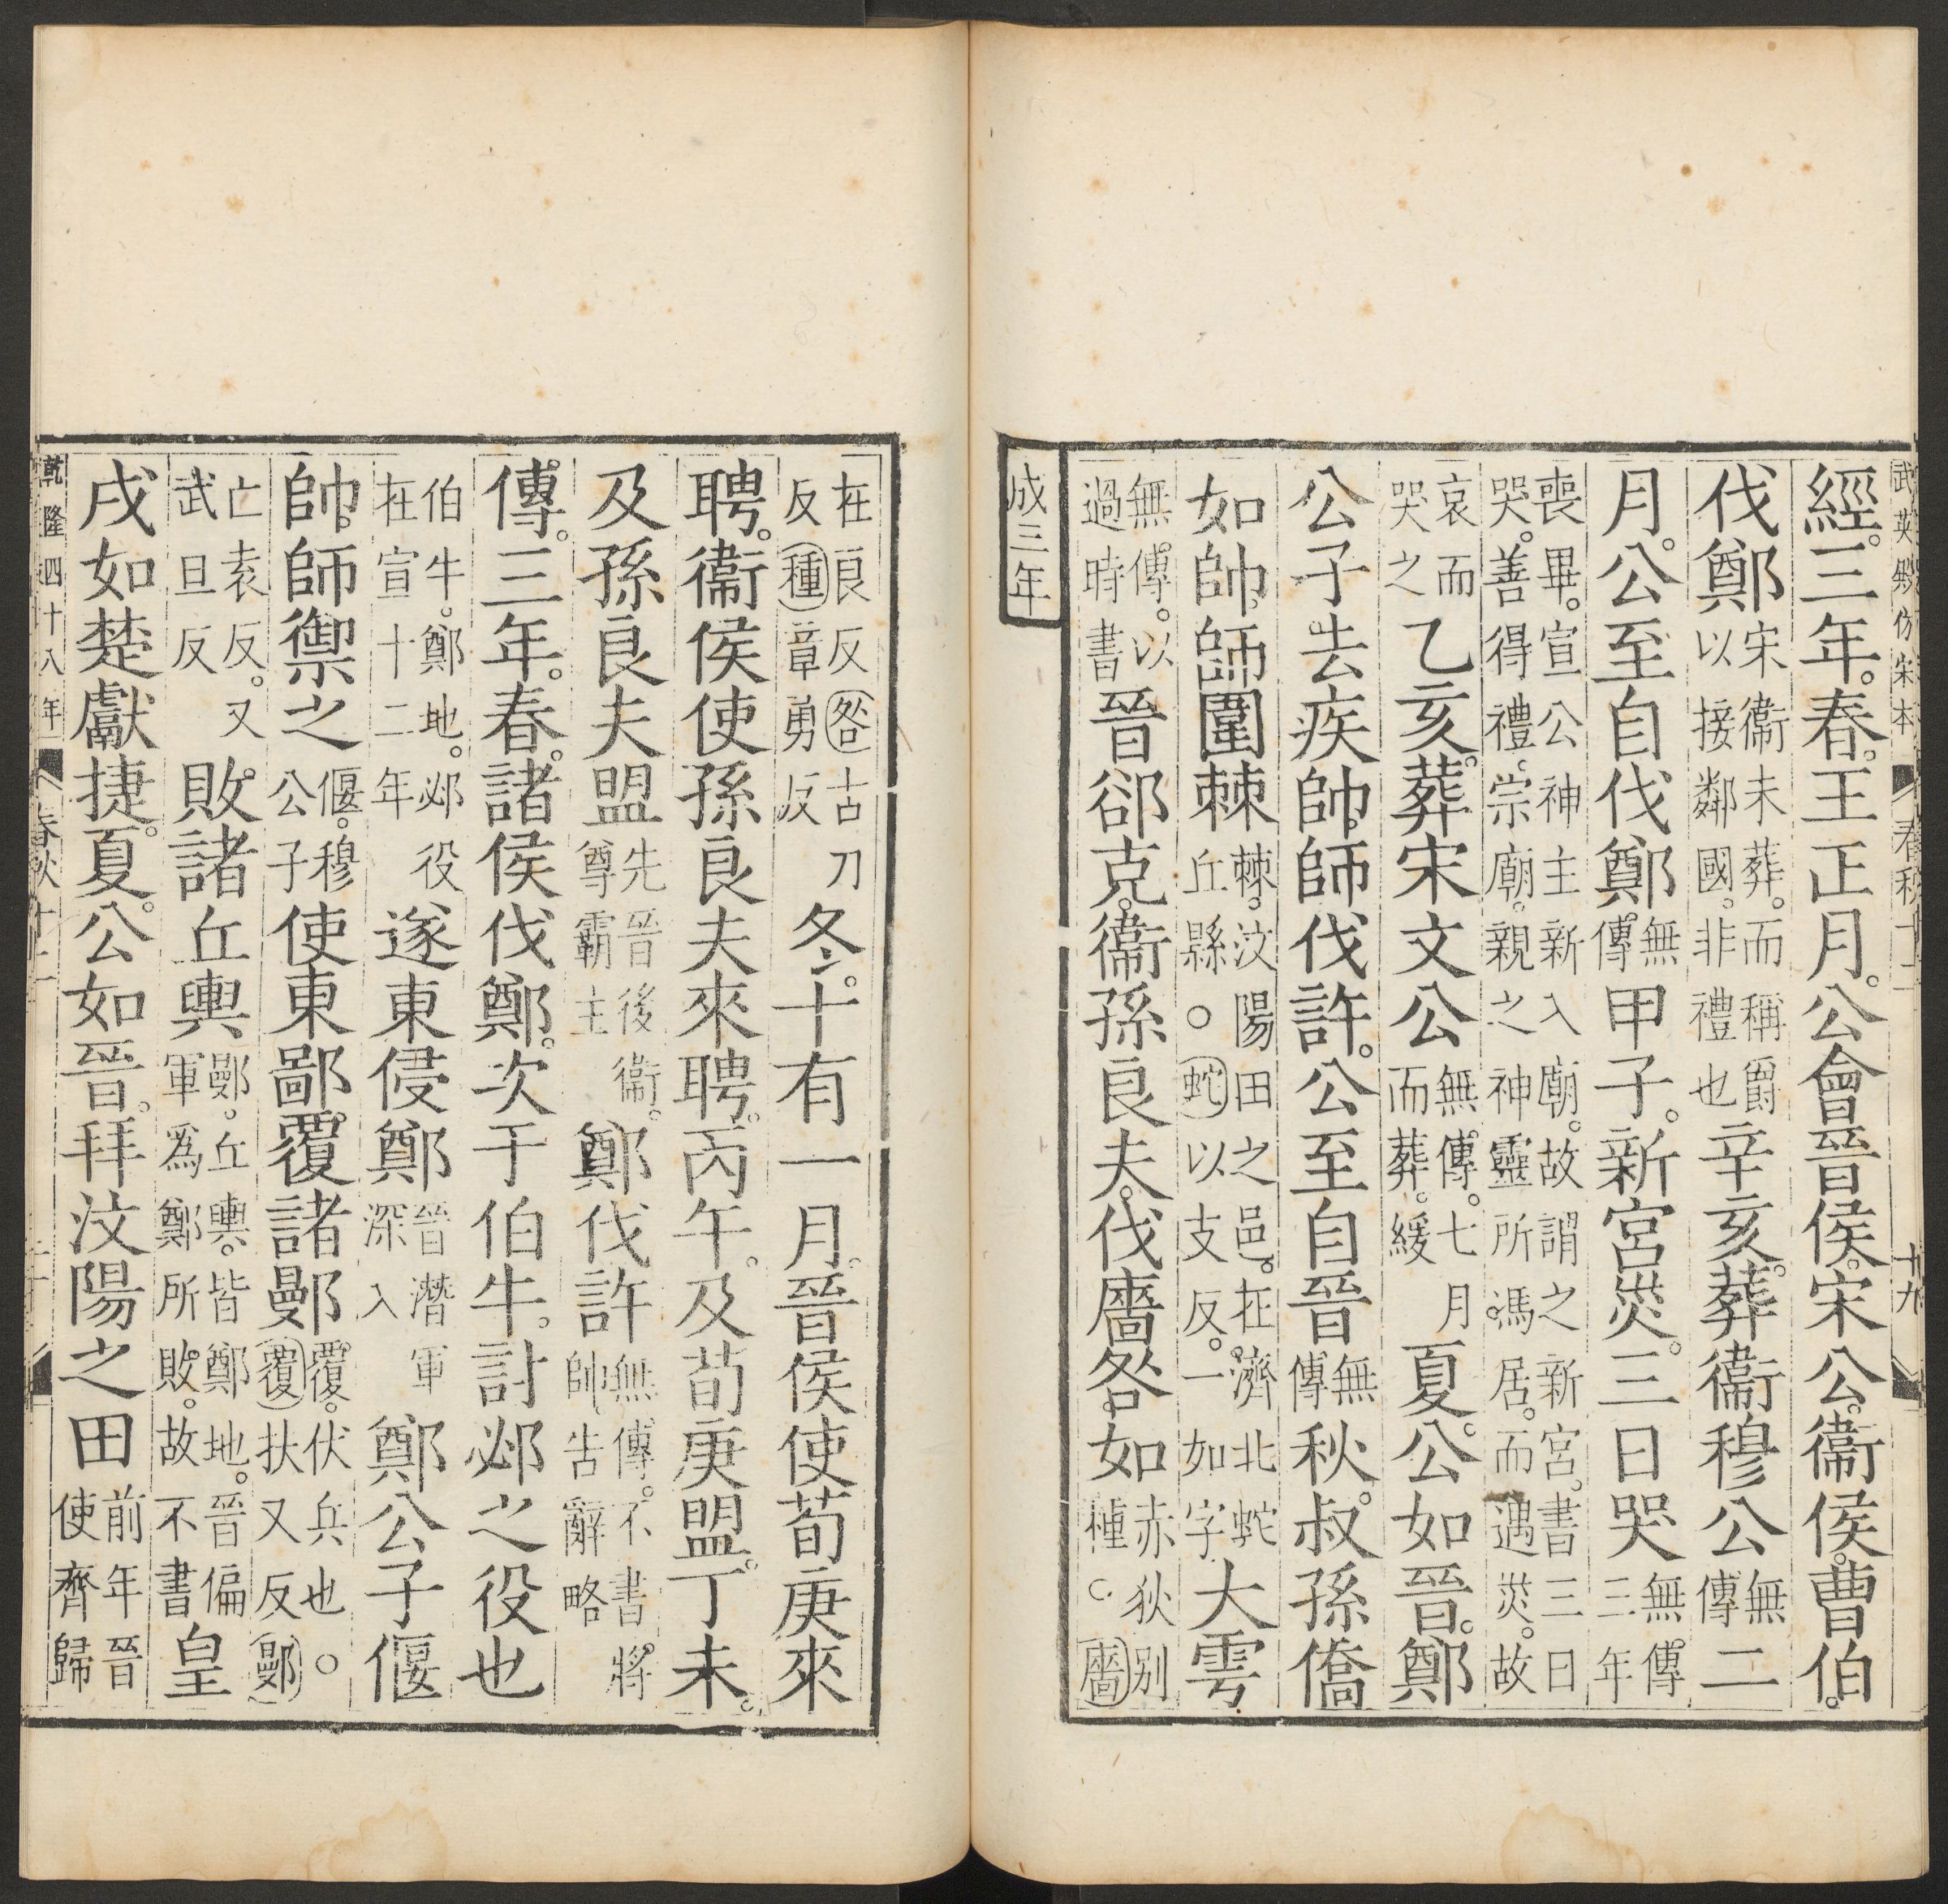 武英殿仿宋本 春秋十二 十九
經。三年。春。王正月。公會晉侯。宋公。衞侯。曹伯。
伐鄭宋衞未葬。而稱爵以接鄰國。非禮也辛亥。葬衞穆公無傳二
月。公至自伐鄭。無傳甲子。新宮災。三日哭無傳。三年
喪畢。宣公神主新入廟。故謂之新宮。書三日哭。善得禮。宗廟。親之神靈所馮居。而遇災。故
哀而哭之乙亥。葬宋文公無傳。七月而葬。緩夏。公如晉。鄭
公子去疾帥師伐許。公至自晉無傳秋。叔孫僑
如帥師圍棘棘。汶陽田之邑。在濟北蛇丘縣○(蛇)以支反。一如字大雩
無傳。以過時書晉郤克。衞孫良夫。伐廧咎。如赤狄别種○(廧)
成三年
在良反(咎)古刀反(種)章勇反冬。十有一月。晉侯使荀庚來
聘。衞侯使孫良夫來聘。丙午。及荀庚盟。丁未。
及孫良夫盟先晉後衞。尊霸主鄭伐許無傳。不書將帥、告辭略
傳。三年。春。諸侯伐鄭。次于伯牛。討邲之役也
伯牛。鄭地。邲役在宣十二年遂東侵鄭晉潛軍深入鄭公子偃
帥師禦之偃。穆公子使東鄙覆諸鄤覆。伏兵也○(覆)扶又反(鄤)
亡袁反。又武旦反敗諸丘輿鄤。丘輿。皆鄭地。晉偏軍爲鄭所敗。故不書皇
戌如楚獻捷。夏。公如晉。拜汶陽之田前年晉使齊歸
乾隆四十八年 春秋十二